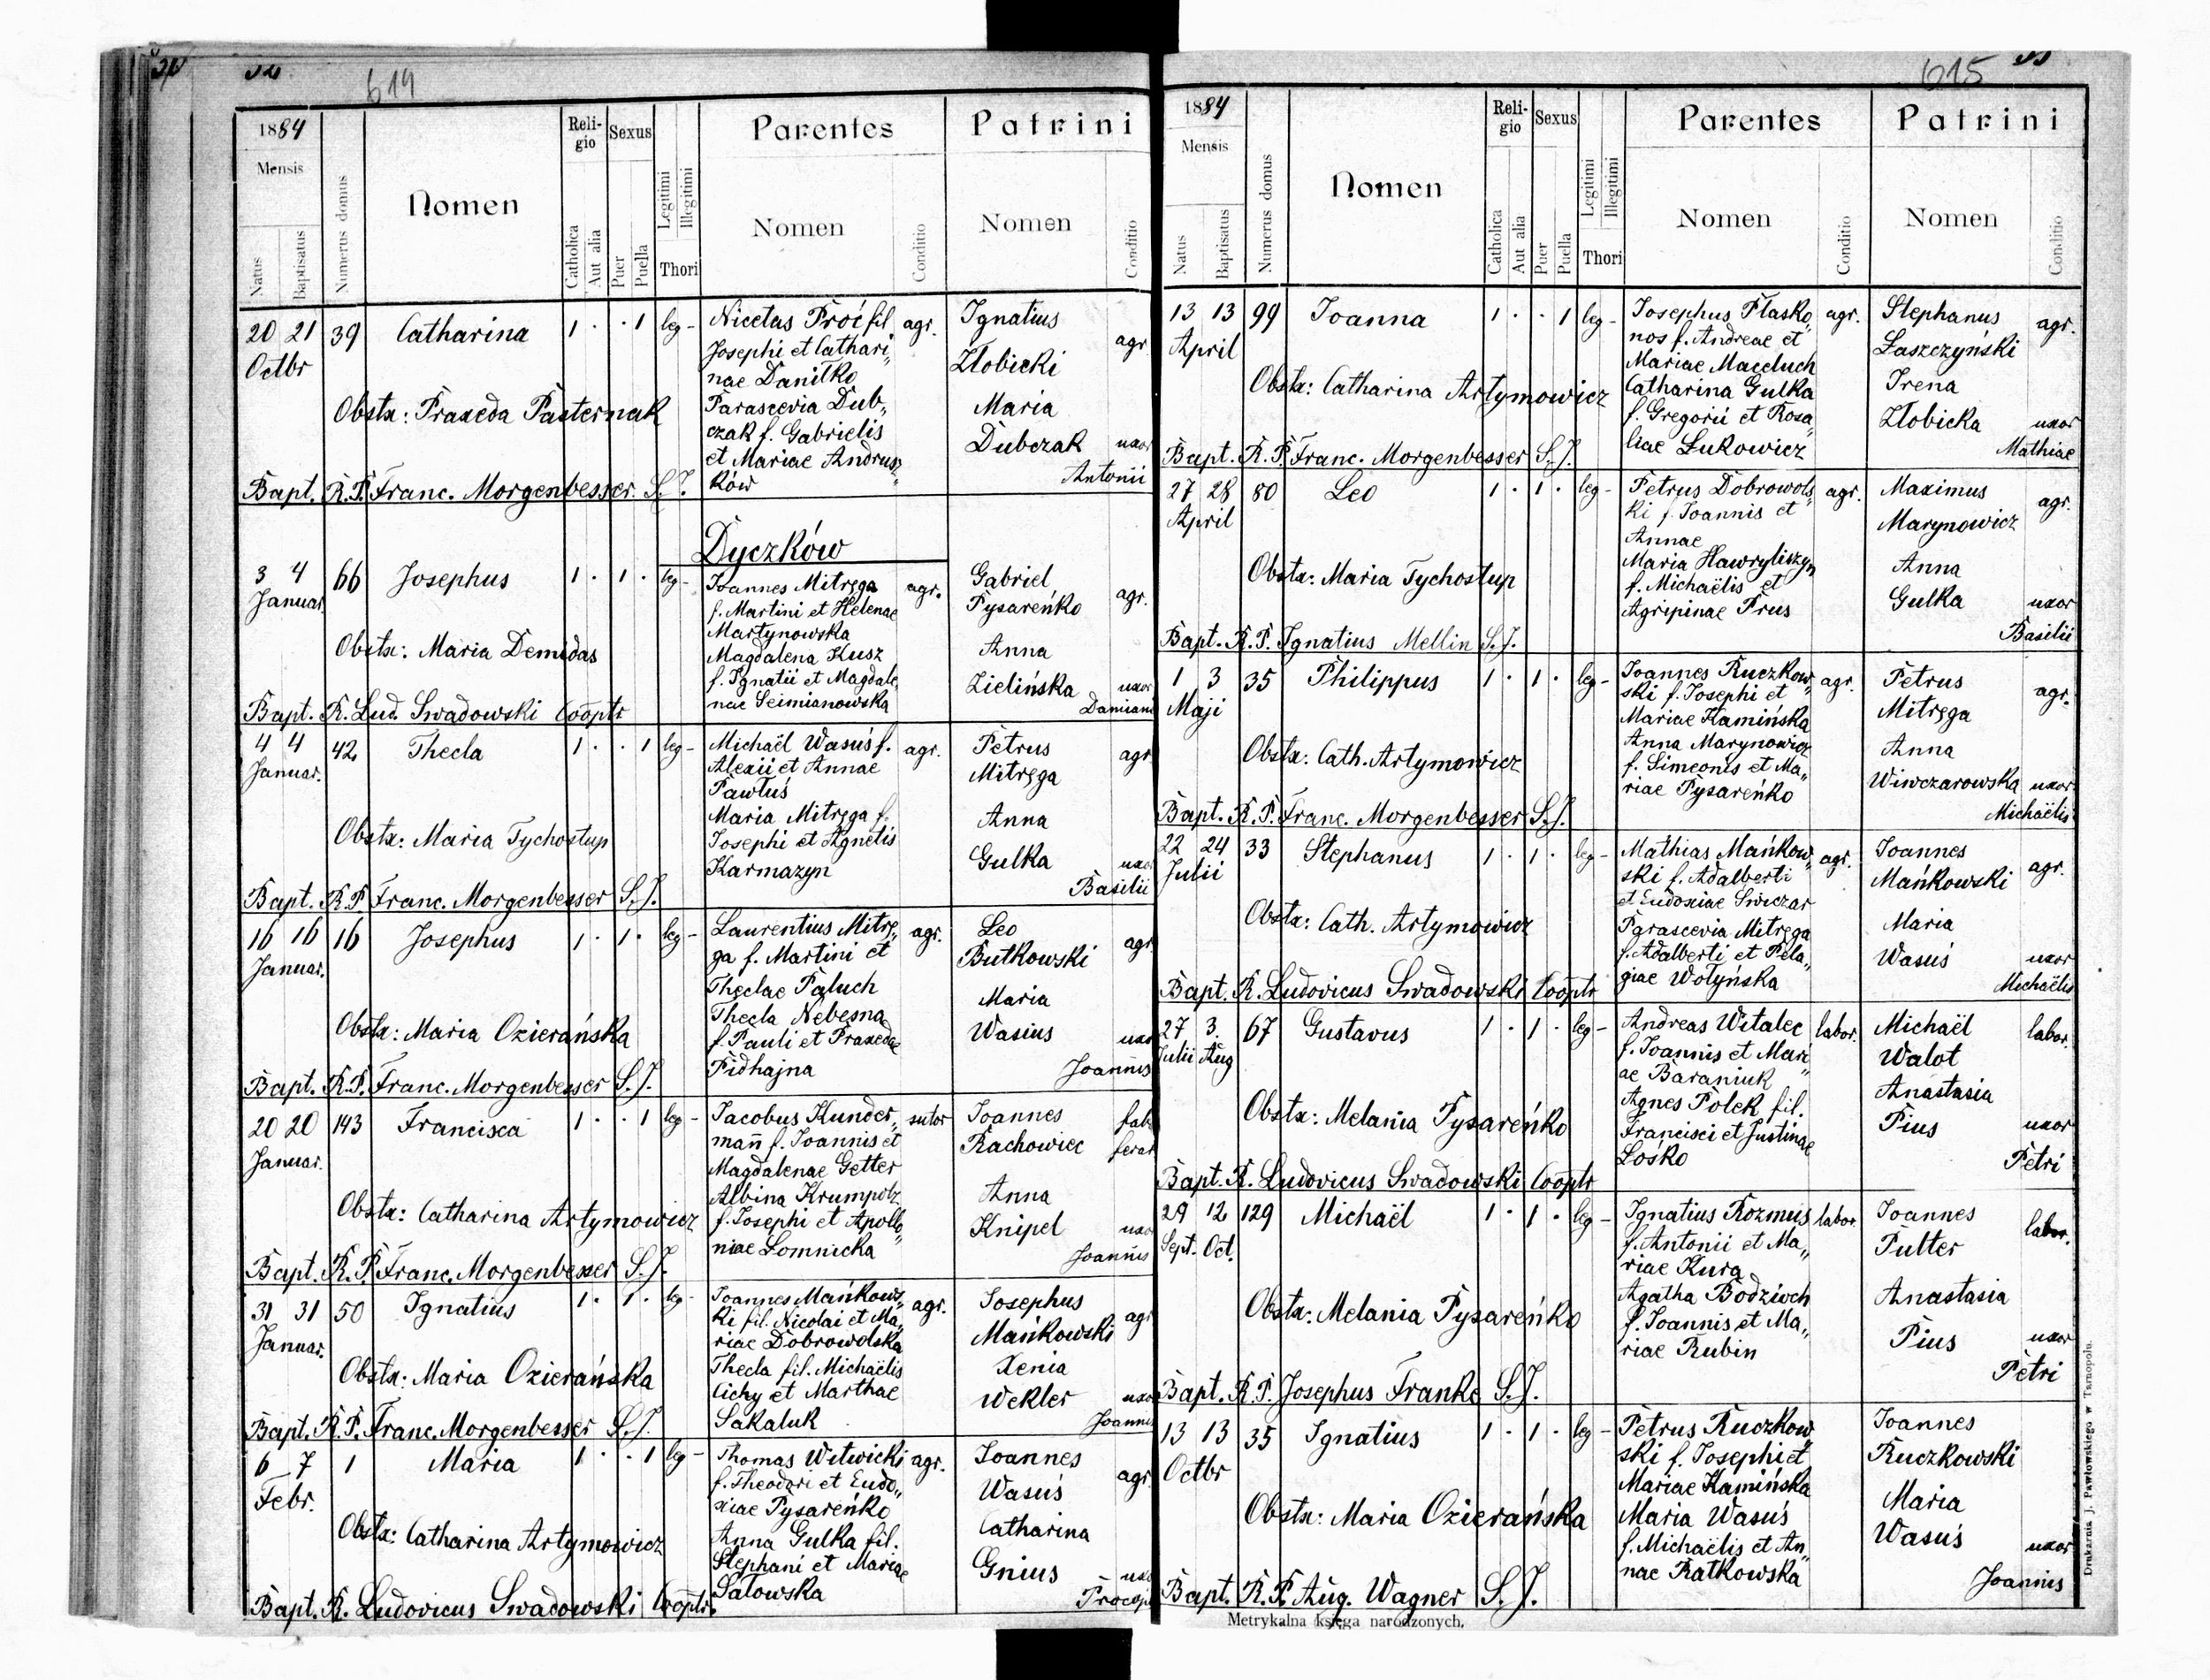 52
614
1884
Mensis
Natus
Baptisatus
Numerus domus
Nomen
Religio
Catholica
Aut alia
Sexus
Puer
Puella
Legitimi
Illegitimi
Thori
Parentes
Nomen
Conditio
Patrini
Nomen
Conditio
20 21 39 Catharina 1 · · 1 leg- Nicetas Proć fil. agr. Ignatius
Octbr Josephi et Cathari„ Złobicki agr.
nae Daniłko
Obstx: Praxeda Pasternak Parascevia Dub„ Maria
czak f. Gabrielis Dubczak uxor
et Mariae Andrusz„ Antonii
Bapt. R.P. Franc. Morgenbesser S.J. ków
Dyczków
3 4 66 Josephus 1 · 1 · leg- Joannes Mitręga agr. Gabriel
Januar. f. Martini et Helenae Pysareńko agr.
Martynowska
Obstx: Maria Demidas Magdalena Kusz Anna
f. Ignatii et Magdale„ Zielińska uxor
Bapt. R. Lud. Swadowski Cooptr nae Seimianowska Damiani
4 4 42 Thecla 1 · · 1 leg- Michaël Wasuś f. agr. Petrus agr.
Januar. Alexii et Annae Mitręga
Pawłuś
Obstx: Maria Tychostup Maria Mitręga f. Anna
Josephi et Agnetis Gulka uxor
Karmazyn Basilii
Bapt. R.P. Franc. Morgenbesser S.J.
16 16 16 Josephus 1 · 1 · leg- Laurentius Mitrę„ agr. Leo
Januar. ga f. Martini et Butkowski agr.
Theclae Paluch
Thecla Nebesna Maria
Obstx: Maria Ozierańska f. Pauli et Praxedae Wasius uxor
Pidhajna Joannis
Bapt. R.P. Franc. Morgenbesser S.J.
20 20 143 Francisca 1 · · 1 leg- Jacobus Kunder„ sutor Joannes fab.
Januar. mañ f. Joannis et Rachowiec ferar.
Magdalenae Getter
Obstx: Catharina Artymowicz Albina Krumpolz Anna
f. Josephi et Apollo„ Knipel uxor
niae Łomnicka Joannis
Bapt. R.P. Franc. Morgenbesser S.J.
31 31 50 Ignatius 1 · 1 · leg- Joannes Mańkows„ agr. Josephus
Januar. ki fil. Nicolai et Ma„ Mańkowski agr.
riae Dobrowolska
Obstx: Maria Ozierańska Thecla fil. Michaëlis Xenia
Cichy et Marthae Wekler uxor
Bapt. R.P. Franc. Morgenbesser S.J. Sakaluk Joannis
6 7 1 Maria 1 · · 1 leg- Thomas Witwicki agr. Joannes
Febr. f. Theodori et Eudo„ Wasuś agr.
xiae Pysareńko
Obstx: Catharina Artymowicz Anna Gulka fil. Catharina
Stephani et Mariae Gnius uxor
Bapt. R. Ludovicus Swadowski Cooptr. Satowska Procopii
615
1884
Mensis
Natus
Baptisatus
Numerus domus
Nomen
Religio
Catholica
Aut alia
Sexus
Puer
Puella
Legitimi
Illegitimi
Thori
Parentes
Nomen
Conditio
Patrini
Nomen
Conditio
13 13 99 Joanna 1 · · 1 leg- Josephus Płasko„ agr. Stephanus agr.
April nos f. Andreae et Łaszczyński
Mariae Macełuch
Obstx: Catharina Artymowicz Catharina Gulka Irena
f. Gregorii et Rosa„ Złobicka uxor
Bapt. R.P. Franc. Morgenbesser S.J. liae Łukowicz Mathiae
27 28 80 Leo 1 · 1 · leg- Petrus Dobrowols„ agr. Maximus agr.
April ki f. Joannis et Marynowicz
Annae
Obstx: Maria Tychostup Maria Hawryliszyn Anna
f. Michaëlis et Gulka uxor
Agripinae Prus Basilii
Bapt. R.P. Ignatius Mellin S.J.
1 3 35 Philippus 1 · 1 · leg- Joannes Ruczkow„ agr. Petrus agr.
Maji ski f. Josephi et Mitręga
Mariae Kamińska
Obstx: Cath. Artymowicz Anna Marynowicz Anna
f. Simeonis et Ma„ Wiwczarowska uxor
riae Pysareńko Michaëlis
Bapt. R.P. Franc. Morgenbesser S.J.
22 24 33 Stephanus 1 · 1 · leg- Mathias Mańkow„ agr. Joannes agr.
Julii ski f. Adalberti Mańkowski
et Eudoxiae Swiczar
Obstx: Cath. Artymowicz Parascevia Mitręga Maria
f. Adalberti et Pela„ Wasuś uxor
Bapt. R. Ludovicus Swadowski Cooptr giae Wołyńska Michaëlis
27 3. 67 Gustavus 1 · 1 · leg- Andreas Witalec labor. Michaël labor.
Julii Aug f. Joannis et Mari„ Walot
ae Baraniuk
Obstx: Melania Pysareńko Agnes Polek fil. Anastasia
Francisci et Justinae Pius uxor
Łośko Petri
Bapt. R. Ludovicus Swadowski Cooptr
29 12 129 Michaël 1 · 1 · leg- Ignatius Rozmus labor. Joannes labor.
Sept. Oct. f. Antonii et Ma„ Putter
riae Kura
Obstx: Melania Pysareńko Agatha Bodzioch Anastasia
f. Joannis et Ma„ Pius uxor
riae Rubin Petri
Bapt. R.P. Josephus Franke S.J.
13 13 35 Ignatius 1 · 1 · leg- Petrus Ruczkow„ Joannes
Octbr ski f. Josephi et Ruczkowski
Mariae Kamińska
Obstx: Maria Ozierańska Maria Wasuś Maria
f. Michaëlis et An„ Wasuś uxor
nae Ratkowska Joannis
Bapt. R.P. Aug. Wagner S.J.
Metrykalna księga narodzonych.
Drukarnia J. Pawłowskiego w Tarnopolu.